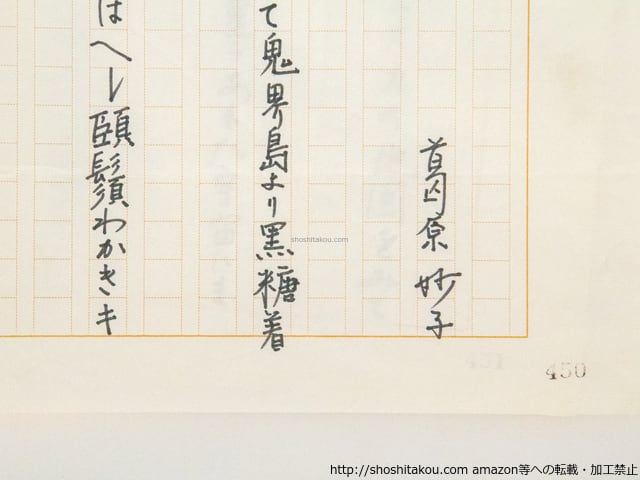 葛原妙子
て鬼界島より黒糖着
はへし頤鬚わかきキ
shoshitakou.com
450
http://shoshitakou.com amazon等への転載・加工禁止